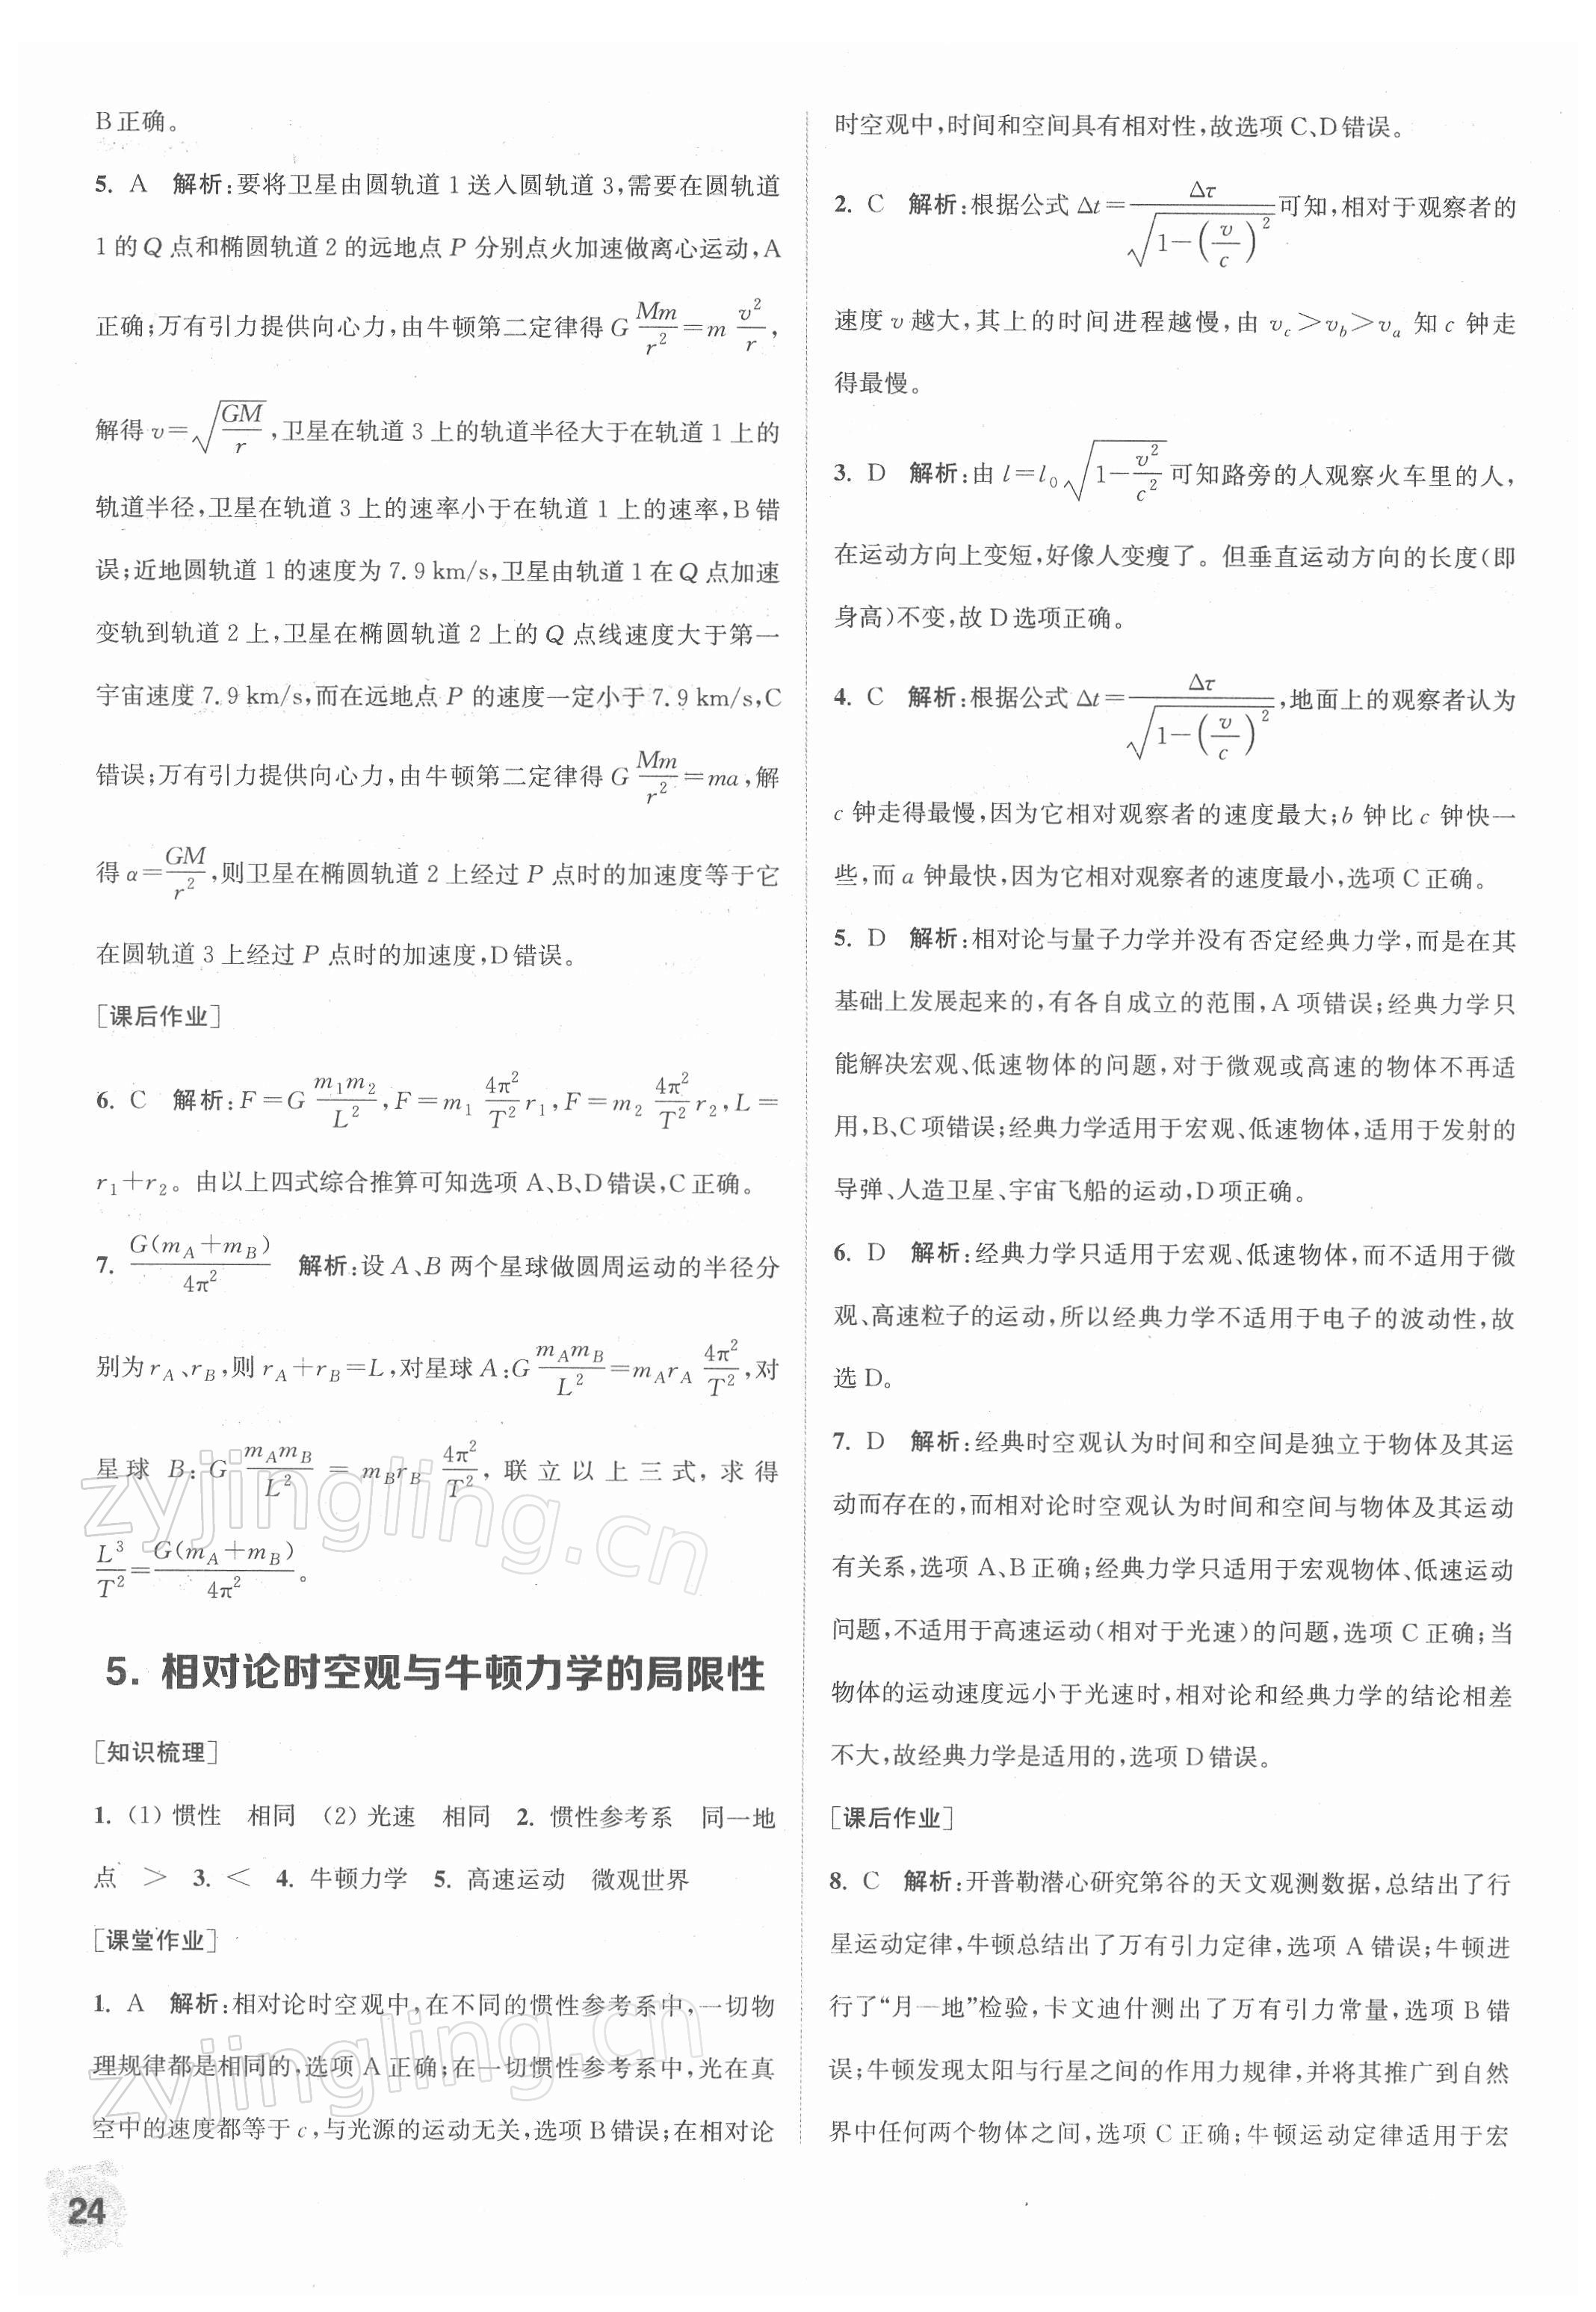 B正确。
5. A 解析:要将卫星由圆轨道1送入圆轨道3,需要在圆轨道
1的Q点和椭圆轨道2的远地点P分别点火加速做离心运动,A
正确;万有引力提供向心力,由牛顿第二定律得 $G\frac{Mm}{r^2}=m\frac{v^2}{r}$,
解得 $v=\sqrt{\frac{GM}{r}}$,卫星在轨道3上的轨道半径大于在轨道1上的
轨道半径,卫星在轨道3上的速率小于在轨道1上的速率,B错
误;近地圆轨道1的速度为7.9 km/s,卫星由轨道1在Q点加速
变轨到轨道2上,卫星在椭圆轨道2上的Q点线速度大于第一
宇宙速度7.9 km/s,而在远地点P的速度一定小于7.9 km/s,C
错误;万有引力提供向心力,由牛顿第二定律得 $G\frac{Mm}{r^2}=ma$,解
得 $\alpha=\frac{GM}{r^2}$,则卫星在椭圆轨道2上经过P点时的加速度等于它
在圆轨道3上经过P点时的加速度,D错误。
[课后作业]
6. C 解析:$F=G\frac{m_1m_2}{L^2}$,$F=m_1\frac{4π^2}{T^2}r_1$,$F=m_2\frac{4π^2}{T^2}r_2$,$L=$
$r_1+r_2$。由以上四式综合推算可知选项A、B、D错误,C正确。
7. $\frac{G(m_A+m_B)}{4π^2}$ 解析:设A、B两个星球做圆周运动的半径分
别为$r_A$、$r_B$,则$r_A+r_B=L$,对星球A:$G\frac{m_Am_B}{L^2}=m_Ar_A\frac{4π^2}{T^2}$,对
星球B:$G\frac{m_Am_B}{L^2}=m_Br_B\frac{4π^2}{T^2}$,联立以上三式,求得
$\frac{L^3}{T^2}=\frac{G(m_A+m_B)}{4π^2}$。
5. 相对论时空观与牛顿力学的局限性
[知识梳理]
1. (1) 惯性 相同 (2) 光速 相同 2. 惯性参考系 同一地
点 > 3. < 4. 牛顿力学 5. 高速运动 微观世界
[课堂作业]
1. A 解析:相对论时空观中,在不同的惯性参考系中,一切物
理规律都是相同的,选项A正确;在一切惯性参考系中,光在真
空中的速度都等于c,与光源的运动无关,选项B错误;在相对论
时空观中,时间和空间具有相对性,故选项C、D错误。
2. C 解析:根据公式 $Δt=\frac{Δτ}{\sqrt{1-(\frac{v}{c})^2}}$ 可知,相对于观察者的
速度v越大,其上的时间进程越慢,由 $v_c>v_b>v_a$ 知c钟走
得最慢。
3. D 解析:由 $l=l_0\sqrt{1-\frac{v^2}{c^2}}$ 可知路旁的人观察火车里的人,
在运动方向上变短,好像人变瘦了。但垂直运动方向的长度(即
身高)不变,故D选项正确。
4. C 解析:根据公式 $Δt=\frac{Δτ}{\sqrt{1-(\frac{v}{c})^2}}$,地面上的观察者认为
c钟走得最慢,因为它相对观察者的速度最大;b钟比c钟快一
些,而a钟最快,因为它相对观察者的速度最小,选项C正确。
5. D 解析:相对论与量子力学并没有否定经典力学,而是在其
基础上发展起来的,有各自成立的范围,A项错误;经典力学只
能解决宏观、低速物体的问题,对于微观或高速的物体不再适
用,B、C项错误;经典力学适用于宏观、低速物体,适用于发射的
导弹、人造卫星、宇宙飞船的运动,D项正确。
6. D 解析:经典力学只适用于宏观、低速物体,而不适用于微
观、高速粒子的运动,所以经典力学不适用于电子的波动性,故
选D。
7. D 解析:经典时空观认为时间和空间是独立于物体及其运
动而存在的,而相对论时空观认为时间和空间与物体及其运动
有关系,选项A、B正确;经典力学只适用于宏观物体、低速运动
问题,不适用于高速运动(相对于光速)的问题,选项C正确;当
物体的运动速度远小于光速时,相对论和经典力学的结论相差
不大,故经典力学是适用的,选项D错误。
[课后作业]
8. C 解析:开普勒潜心研究第谷的天文观测数据,总结出了行
星运动定律,牛顿总结出了万有引力定律,选项A错误;牛顿进
行了“月—地”检验,卡文迪什测出了万有引力常量,选项B错
误;牛顿发现太阳与行星之间的作用力规律,并将其推广到自然
界中任何两个物体之间,选项C正确;牛顿运动定律适用于宏
24
zyjingling.cn
zyjingling.cn